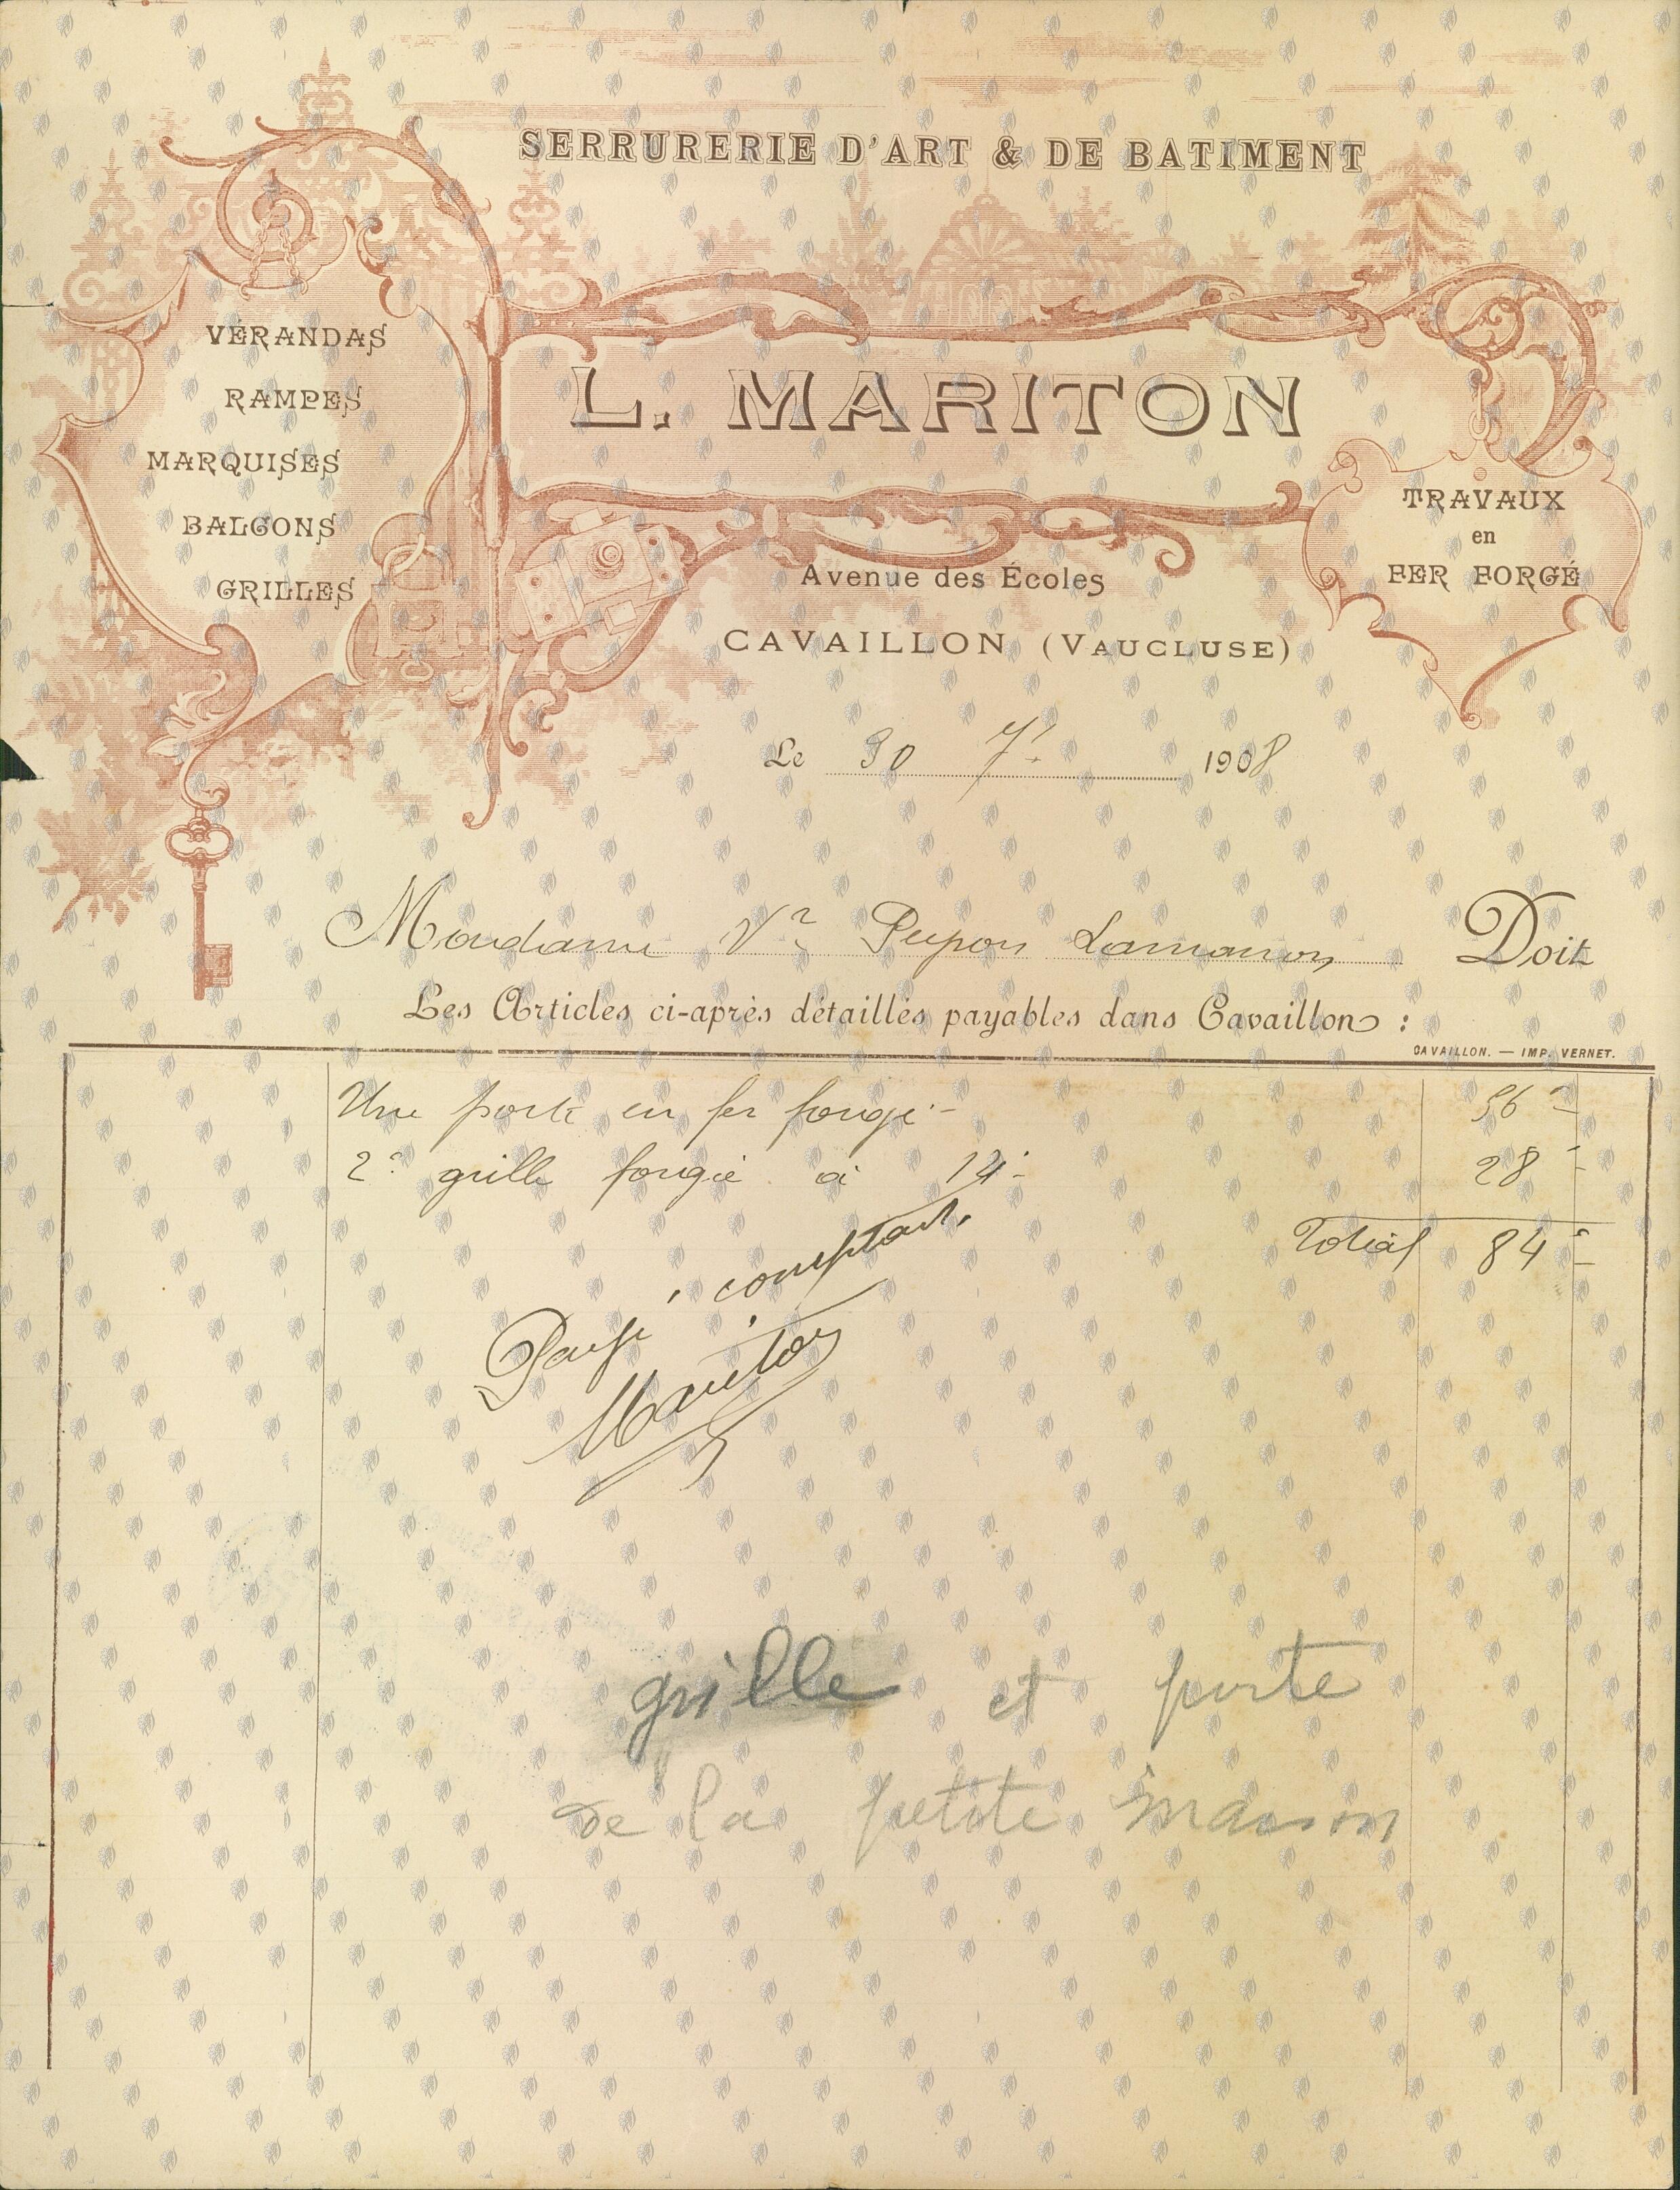 SERRURERIE D'ART & DE BATIMENT
VÉRANDAS
RAMPES
MARQUISES
BALCONS
GRILLES
L. MARITON
TRAVAUX
en
FER FORGÉ
Avenue des Écoles
CAVAILLON (VAUCLUSE)
Le 30 7 1908
Madame Vve Pupon Lamanon Doit
Les Articles ci-après détaillés payables dans Cavaillon :
CAVAILLON. — IMP. VERNET.
Une porte en fer forgé 56
2 grille forgié à 14 28
Total 84
Payé comptant
Mariton
grille et porte
de la petite maison